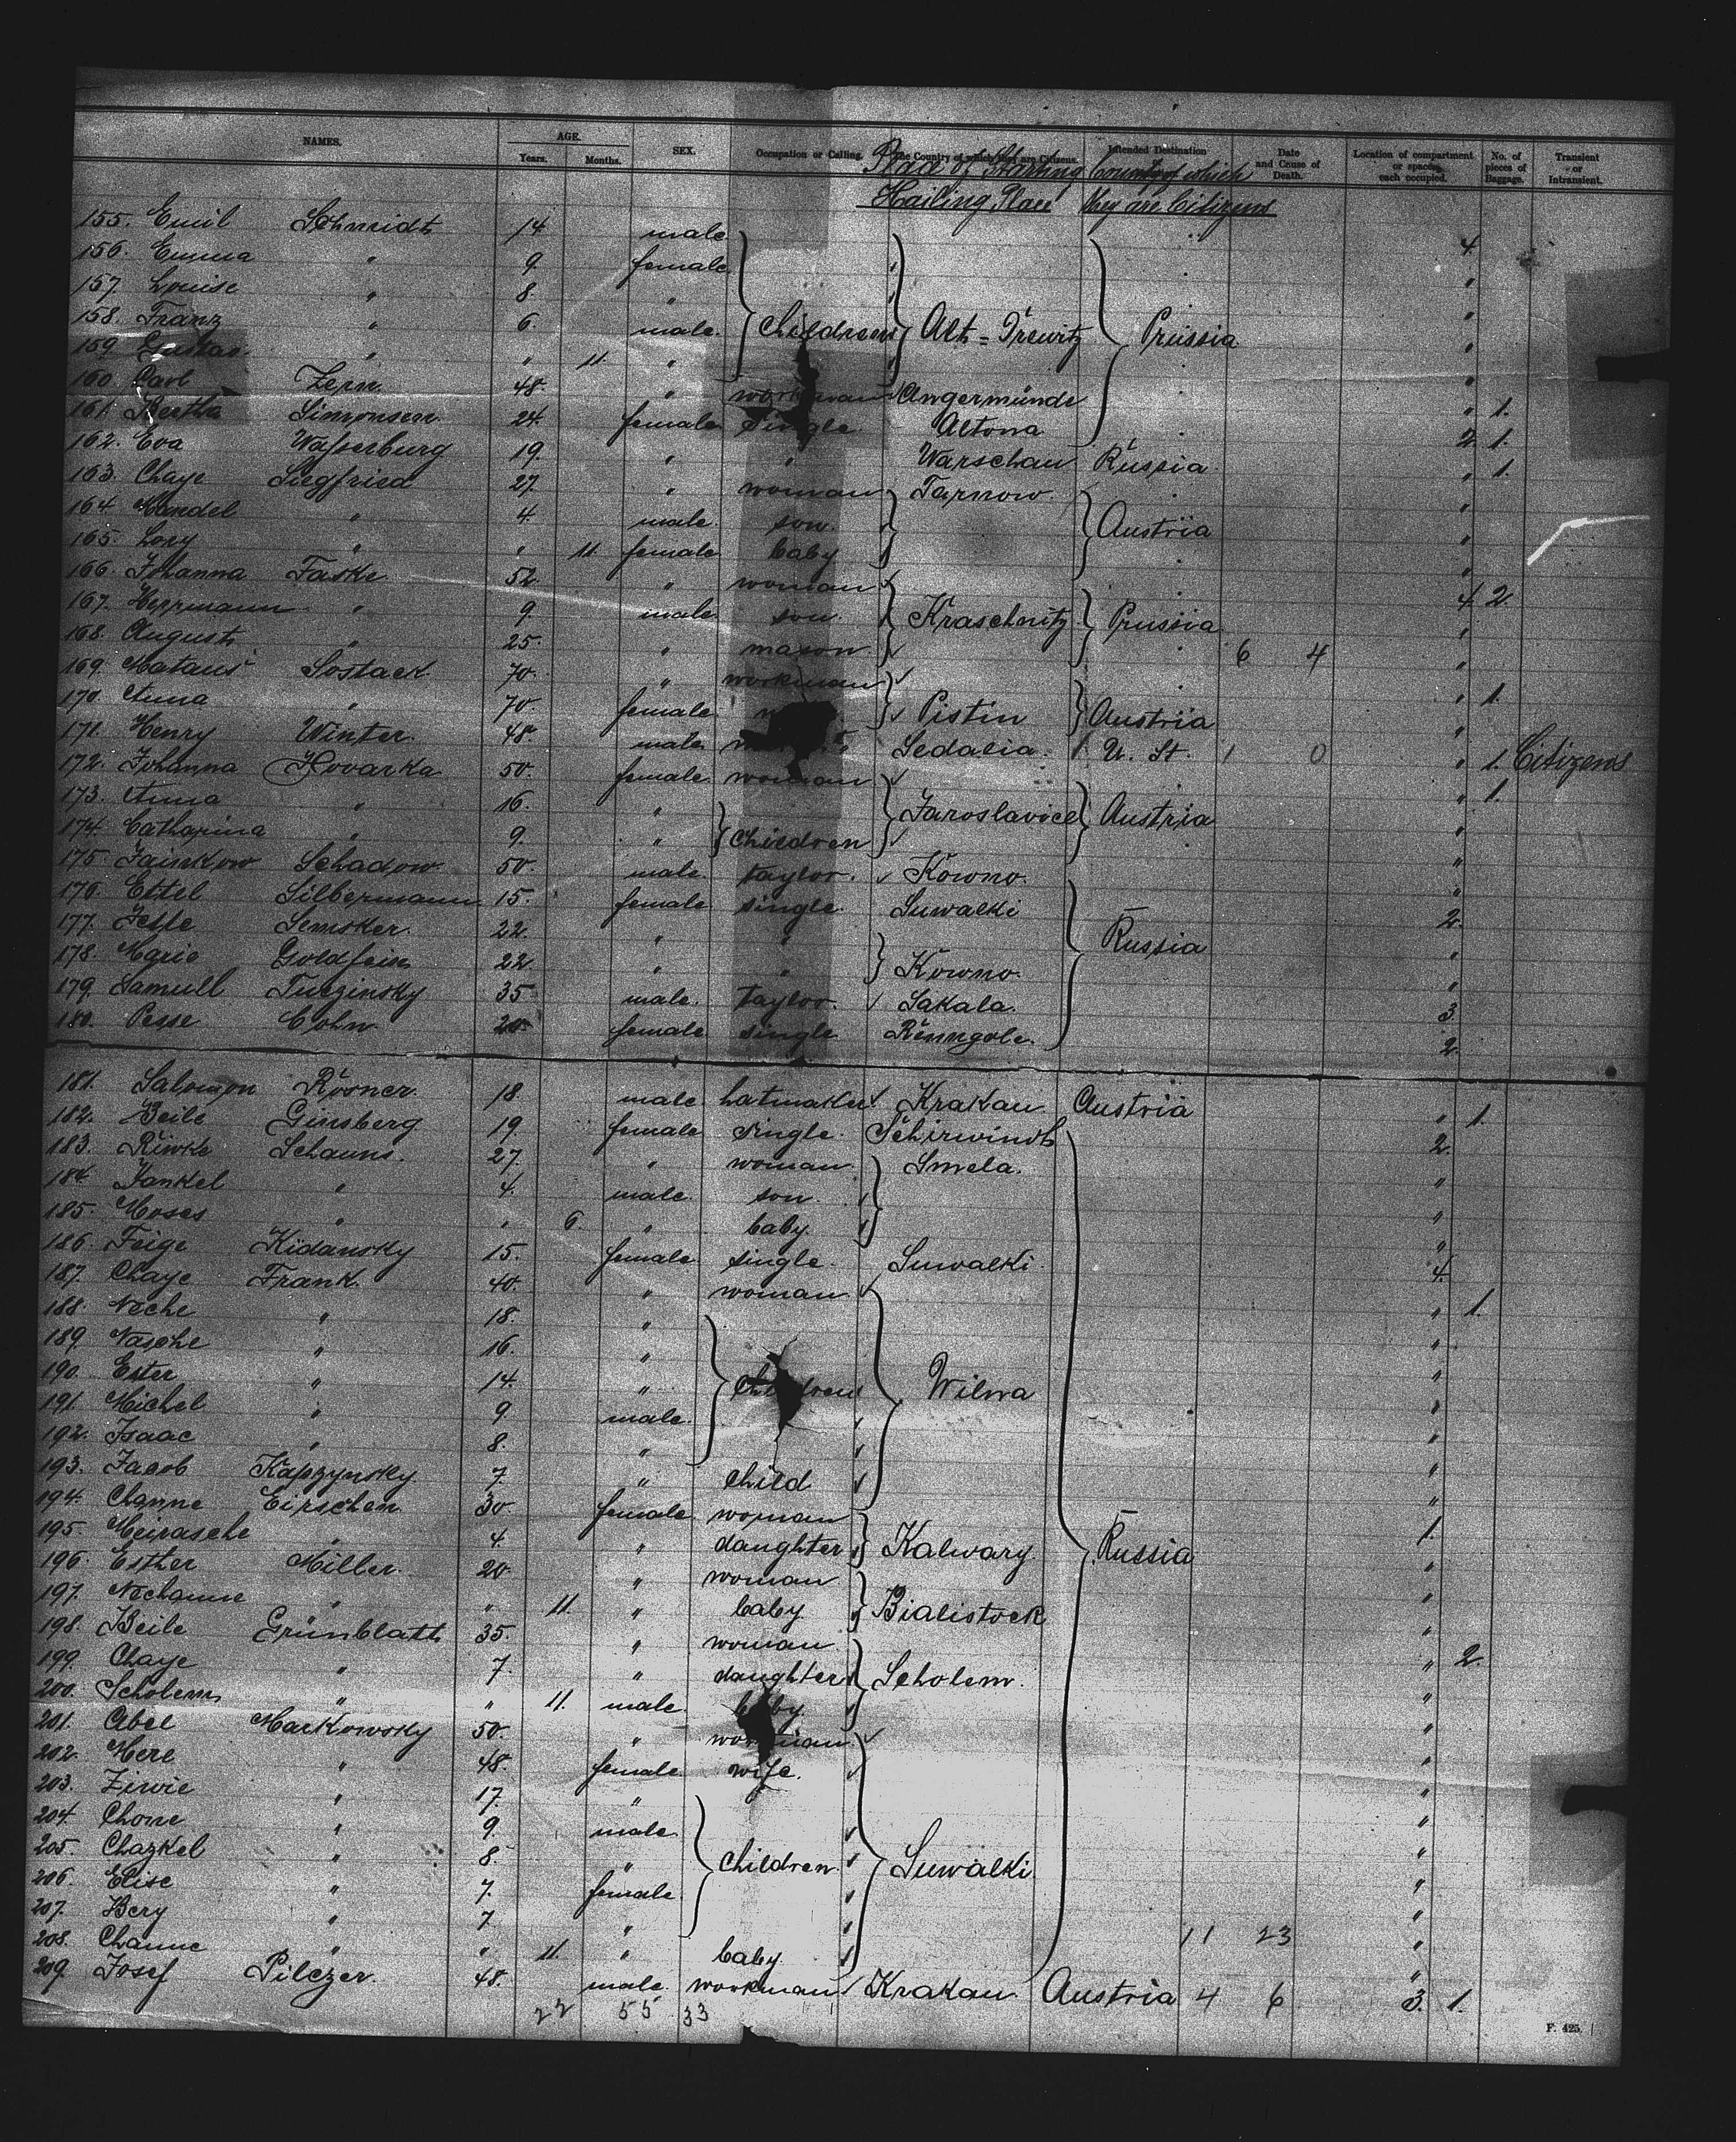 NAMES. AGE. Years. Months. SEX. Occupation or Calling. The Country of which they are Citizens. Intended Destination Date and Cause of Death. Location of compartment or spaces each occupied. No. of pieces of Baggage. Transient or Intransient.
Place of Starting Country of which
Hailing Place they are Citizens
155. Emil Schmidt 14 male 4.
156. Emma " 9. female "
157. Louise " 8. " "
158. Franz " 6. male. Children Alt=Trewitz Prussia "
159. Gustav " " 11. " "
160. Carl Zern 48. " workman Angermünde " 1.
161. Bertha Simonsen 24. female single. Altona 2. 1.
162. Eva Wasserburg 19. " " Warschau Russia " 1.
163. Chaye Siegfried 27. " woman Tarnow. "
164. Mendel " 4. male. son. Austria "
165. Lory " " 11. female baby "
166. Johanna Taske 52. " woman 4. 2.
167. Herrmann " 9. male son. Kraschnitz Prussia "
168. August " 25. " mason. 6 4 "
169. Mataus Sostack 70. " workman " 1.
170. Anna " 70. female Pistin Austria "
171. Henry Winter. 48. male Sedalia. U. St. 1 0 " 1. Citizens
172. Johanna Hovarka 50. female woman " 1.
173. Anna " 16. " Jaroslavice Austria "
174. Catharina " 9. " Children "
175. Jainkow Schadow 50. male taylor. Kowno. "
176. Ettel Silbermann 15. female single. Suwalki 2.
177. Jesse Semsker. 22. " " Russia "
178. Marie Goldfein 22. " " Kowno. "
179. Samull Turzinsky 35 male. taylor. Sakala. 3.
180. Pesse Cohn 20. female single Renngole. 2.
181. Salomon Rosner. 18. male hatmaker Krakau Austria " 1.
182. Beile Ginsberg 19. female single. Schirwindt 2.
183. Riwke Schauns. 27. " woman. Smela. "
184. Jankel " 4. male. son. "
185. Moses " " 6. " baby. "
186. Feige Kidansky 15. female single. Suwalki. 4.
187. Chaye Frank. 40. " woman " 1.
188. Neche " 18. " "
189. Nasche " 16. " "
190. Ester " 14. " Children Wilna "
191. Michel " 9. male. "
192. Isaac " 8. " "
193. Jacob Kapzynsky 7. " Child "
194. Channe Eirschen 30 female. woman 1.
195. Meirasche " 4. " daughter Kalwary. Russia "
196. Esther Miller. 20. " woman "
197. Nechanne " " 11. " baby. Bialistock "
198. Beile Grünblatt 35. " woman. " 2.
199. Chaye " 7. " daughter Scholem. "
200. Scholem " " 11. male. baby. "
201. Abel Markowsky 50. " workman "
202. Mere " 48. female wife. "
203. Ziwie " 17. " "
204. Chone " 9. male "
205. Chazkel " 8. " Children. Suwalki "
206. Elise " 7. female "
207. Bery " 7. " 11 23 "
208. Channe " " 11. " baby. "
209. Josef Pilczer. 48. male. workman Krakau Austria 4 6 3. 1.
22 55 33
F. 425.